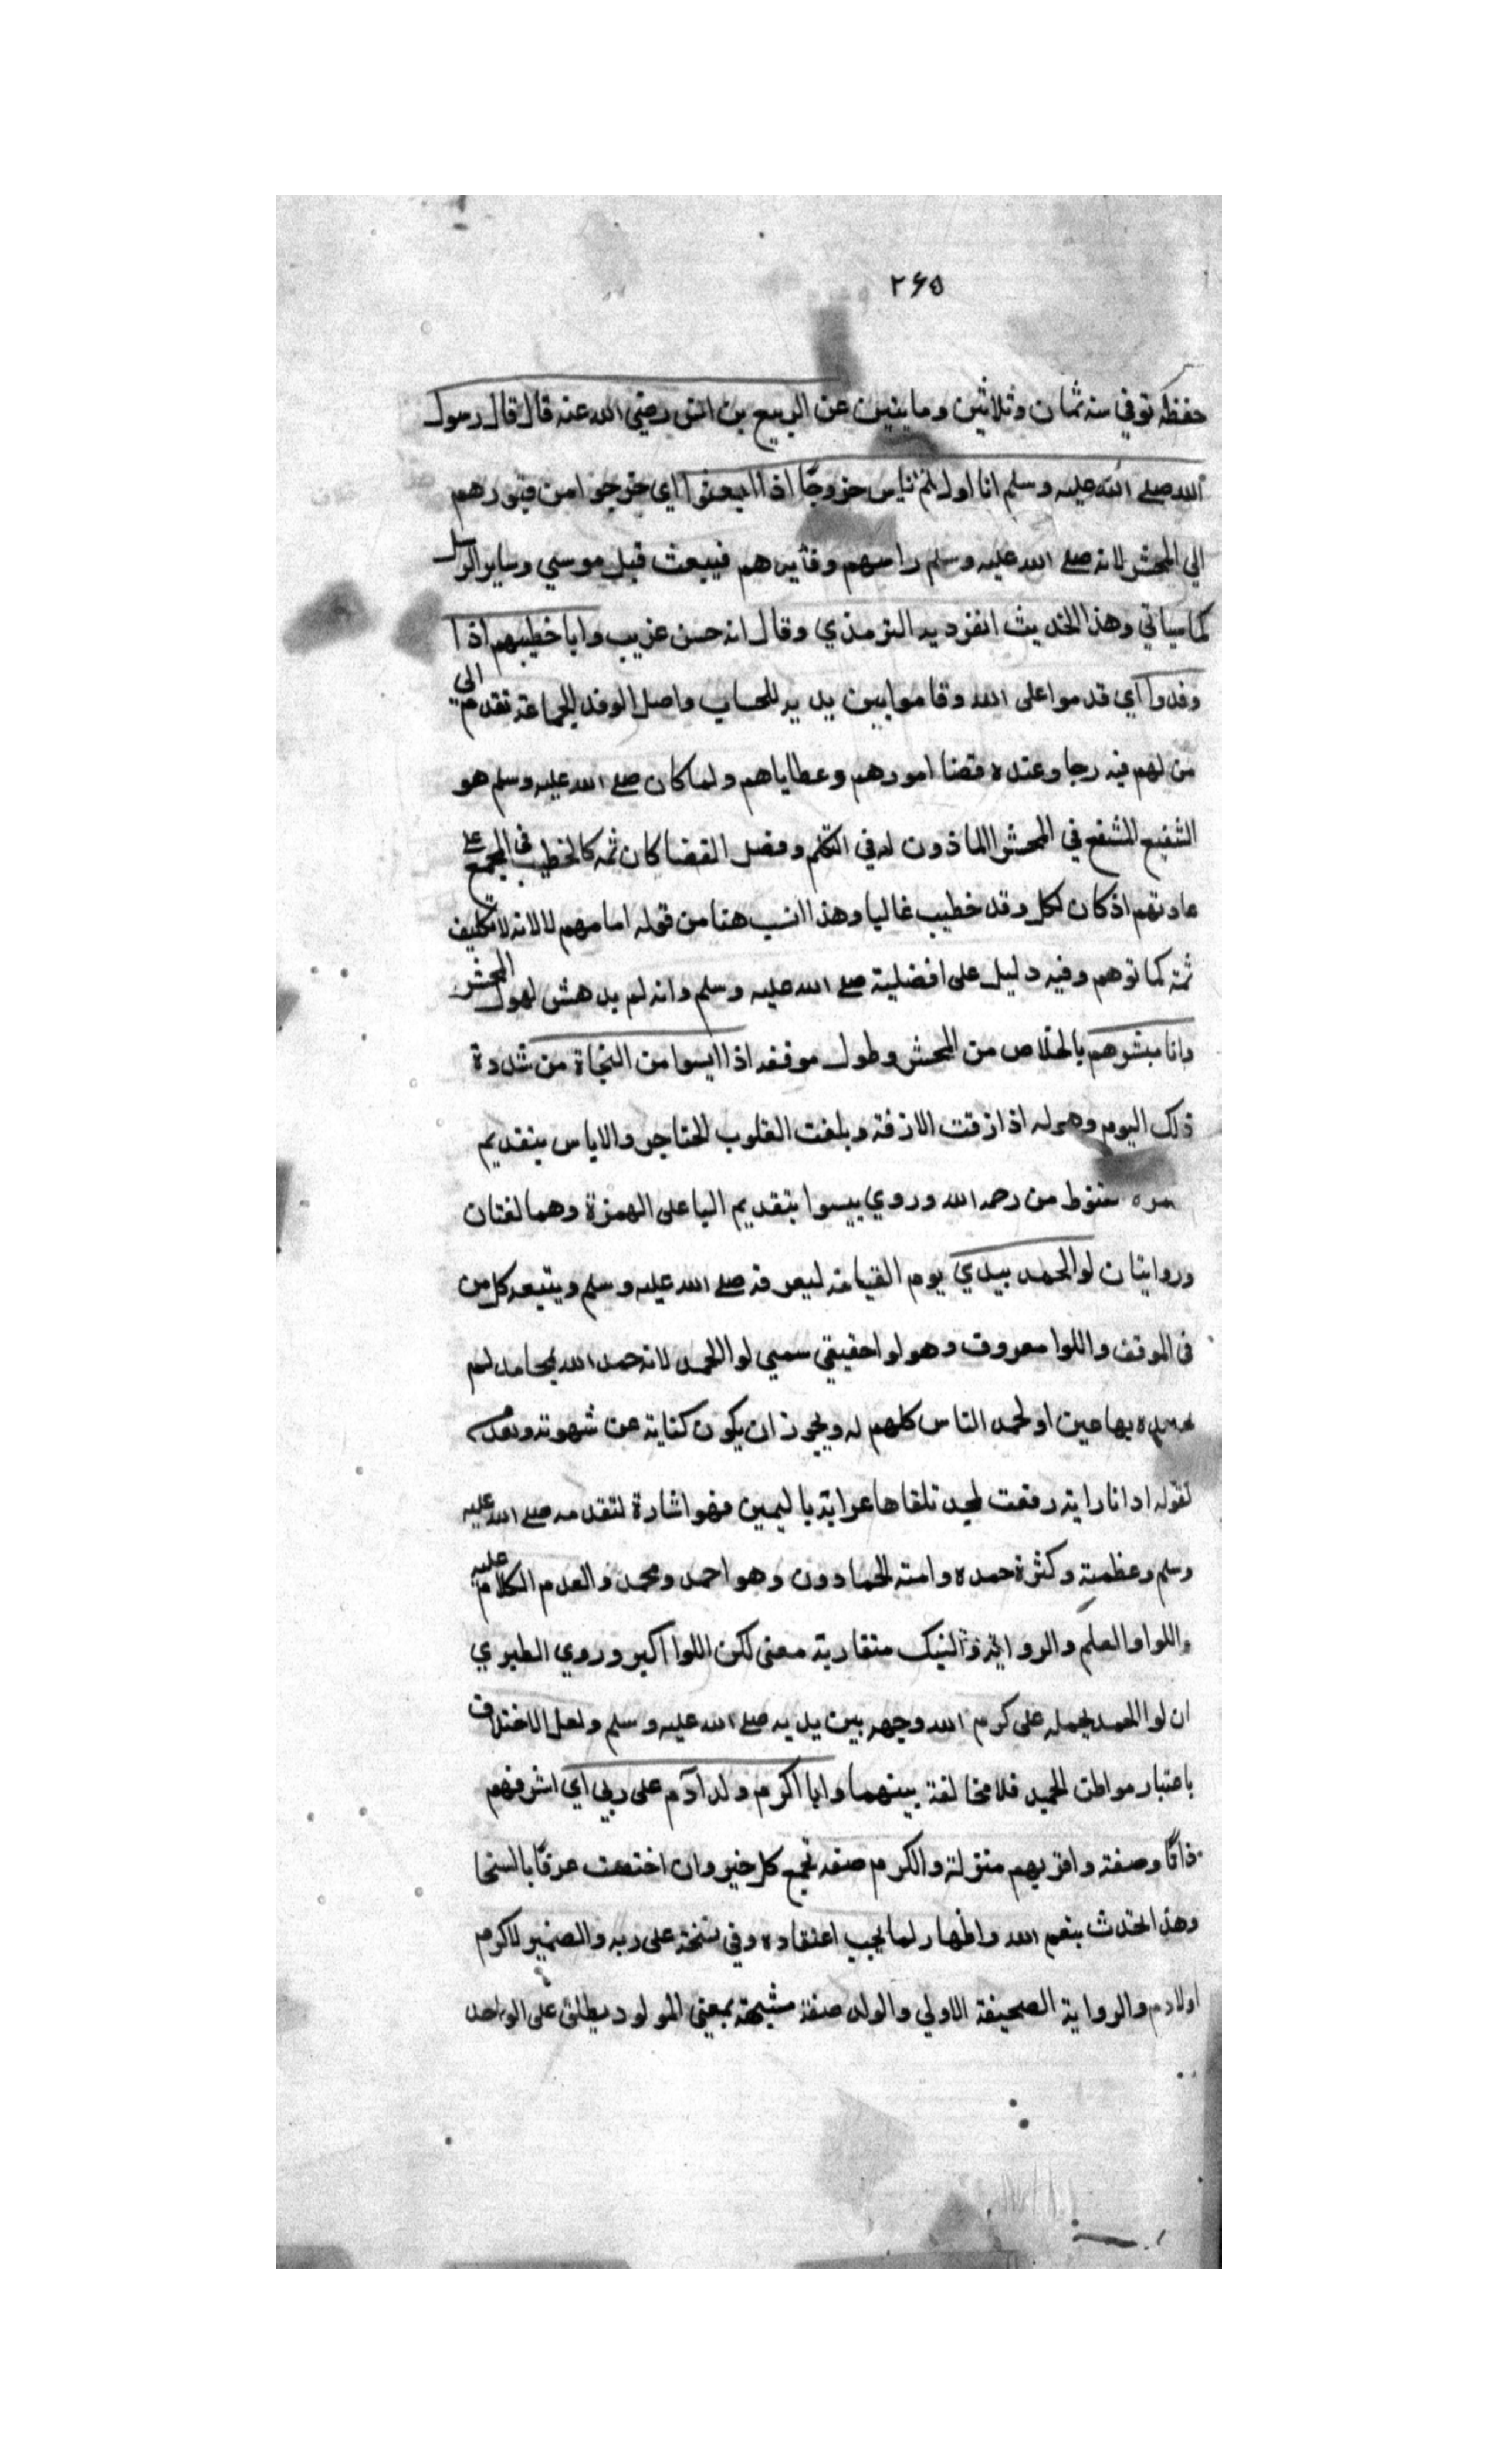 ٢٦٥
حفظه توفي سنه ثمان وثلاثين وماينين عن الربيع بن انس رضي الله عنه قال قال رسول
الله صلي الله عليه وسلم انا اول الناس خروجًا اذا ابعثوا اي خرجوا من قبورهم
الي المحشر لانه صلي الله عليه وسلم راسهم وقايدهم فيبعث قبل موسي وساير الرسل
كما سياتي وهذا الحديث انفرد به الترمذي وقال انه حسن غريب وانا خطيبهم اذا
وفدوا اي قدموا على الله وقاموا بين يديه للحساب واصل الوفد الجماعة تقدم الى
من لهم فيه رجا وعنده قضا امورهم وعطاياهم ولما كان صلي الله عليه وسلم هو
الشفيع المشفع في المحشر الماذون له في التكلم وفصل القضا كان ثمه كالخطيب في المجمع على
عادتهم اذ كان لكل وفد خطيب غالبا وهذا انسب هنا من قوله امامهم لا لانه لا تكليف
ثمة كما توهم وفيه دليل على افضلية صلي الله عليه وسلم وانه لم يدهش لهول المحشر
وانا مبشرهم بالخلاص من المحشر وطول موقفه اذا ايسوا من النجاة من شدة
ذلك اليوم وهوله اذ ازفت الازفة وبلغت القلوب الحناجر والاياس بتقديم
من رحمه الله وروي ييسوا بتقديم اليا على الهمزة وهما لغتان
وروايتان لوا الحمد بيدي يوم القيامة ليعرفه صلي الله عليه وسلم ويتبعه كل من
في الموقف واللوا معروف وهو لوا حقيقي سمي لوا الحمد لانه حمد الله بمحامد لم
يحمده بها عين او لحمد الناس كلهم له ويجوز ان يكون كناية عن شهرته
لقوله اذا ما راية رفعت لمجد تلقاها عرابة باليمين فهو اشارة لتقدمه صلي الله عليه
وسلم وعظمته وكثرة حمده وامته الحمادون وهو احمد ومحمد الكلام عليه
واللوا والعلم والراية متقاربة معنى لكن اللوا اكبر وروي الطبري
ان لوا الحمد يحمله على كرم الله وجهه بين يديه صلي الله عليه وسلم ولعل الاختلاف
باعتبار مواطن الحمد فلا مخالفة بينهما وانا اكرم ولد آدم على ربي اي اشرفهم
ذاتًا وصفة واقربهم منزلة والكرم صفة تجمع كل خير وان اختصت عرفًا بالسخا
وهذا تحدث بنعم الله واظهار لما يجب اعتقاده وفي نسخة على ربه والضمير لاكرم
اولادم والرواية الصحيفة الاولي والولد صفة مشبهة بمعنى المولود يطلق على الواحد